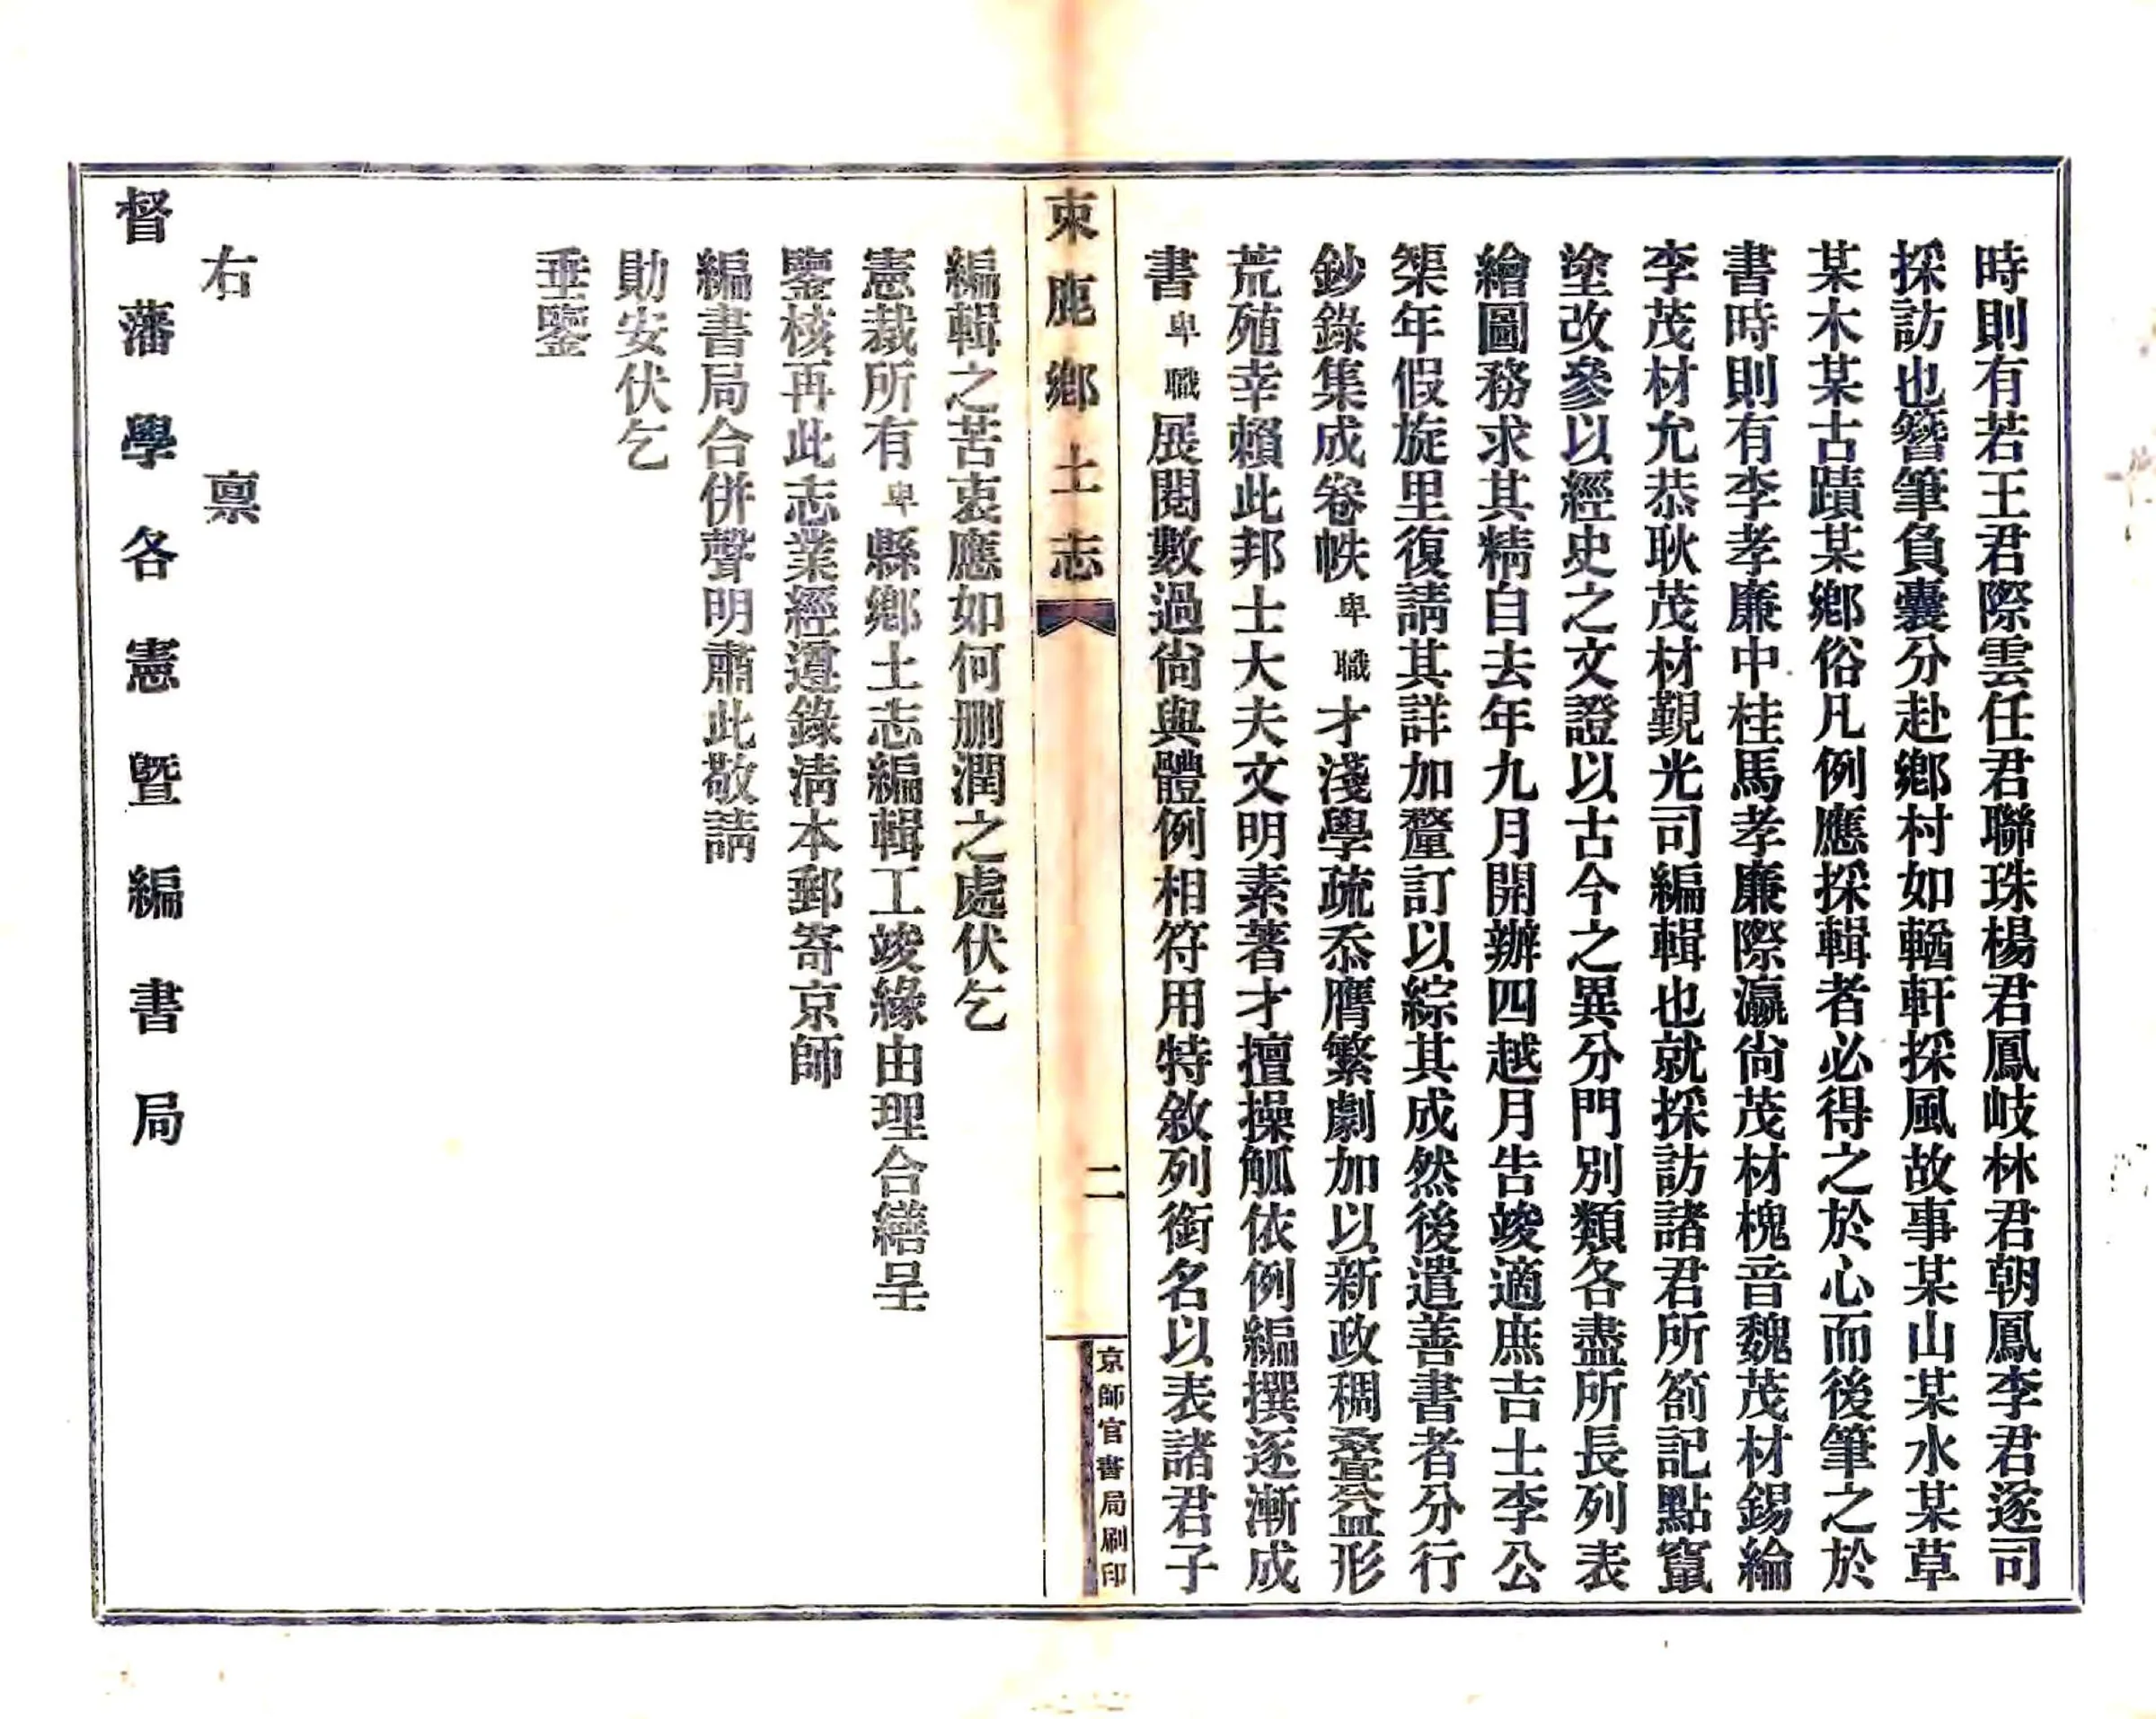 時則有若王君際雲任君聯珠楊君鳳岐林君朝鳳李君遂司
採訪也簪筆負囊分赴鄉村如輶軒採風故事某山某水某草
某木某古蹟某鄉俗凡例應採輯者必得之於心而後筆之於
書時則有李孝廉中桂馬孝廉際瀛尙茂材槐音魏茂材錫綸
李茂材允恭耿茂材覲光司編輯也就採訪諸君所箚記點竄
塗改參以經史之文證以古今之異分門別類各盡所長列表
繪圖務求其精自去年九月開辦四越月告竣適庶吉士李公
榘年假旋里復請其詳加釐訂以綜其成然後遣善書者分行
鈔錄集成卷帙卑職才淺學疏忝膺繁劇加以新政稠疊益形
荒殖幸賴此邦士大夫文明素著才擅操觚依例編撰逐漸成
書卑職展閱數過尙與體例相符用特敘列銜名以表諸君子
束鹿鄉土志
二
京師官書局刷印
編輯之苦衷應如何删潤之處伏乞
憲裁所有卑縣鄉土志編輯工竣緣由理合繕呈
鑒核再此志業經遵錄淸本郵寄京師
編書局合併聲明肅此敬請
勛安伏乞
垂鑒
右稟
督藩學各憲暨編書局